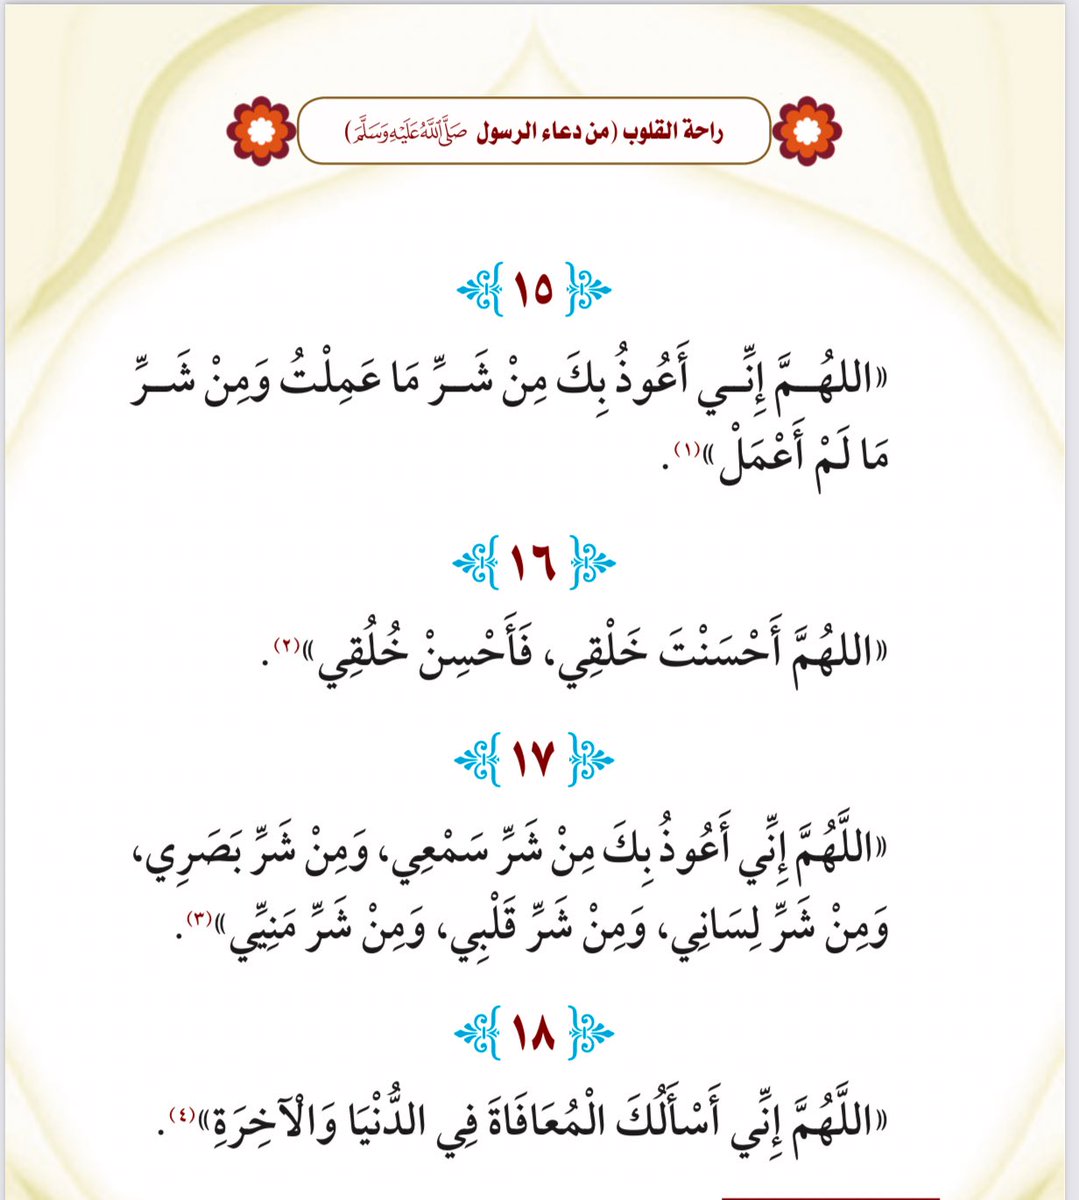 راحة القلوب (من دعاء الرسول صَلَّى اللَّهُ عَلَيْهِ وَسَلَّمَ)
١٥
«اللهُــمَّ إِنِّــي أَعُوذُ بِكَ مِنْ شَــرِّ مَا عَمِلْتُ وَمِنْ شَــرِّ
مَا لَمْ أَعْمَلْ»(١).
١٦
«اللهُمَّ أَحْسَنْتَ خَلْقِي، فَأَحْسِنْ خُلُقِي»(٢).
١٧
«اللَّهُمَّ إِنِّي أَعُوذُ بِكَ مِنْ شَرِّ سَمْعِي، وَمِنْ شَرِّ بَصَرِي،
وَمِنْ شَرِّ لِسَانِي، وَمِنْ شَرِّ قَلْبِي، وَمِنْ شَرِّ مَنِيِّي»(٣).
١٨
«اللَّهُمَّ إِنِّي أَسْأَلُكَ الْمُعَافَاةَ فِي الدُّنْيَا وَالْآخِرَةِ»(٤).